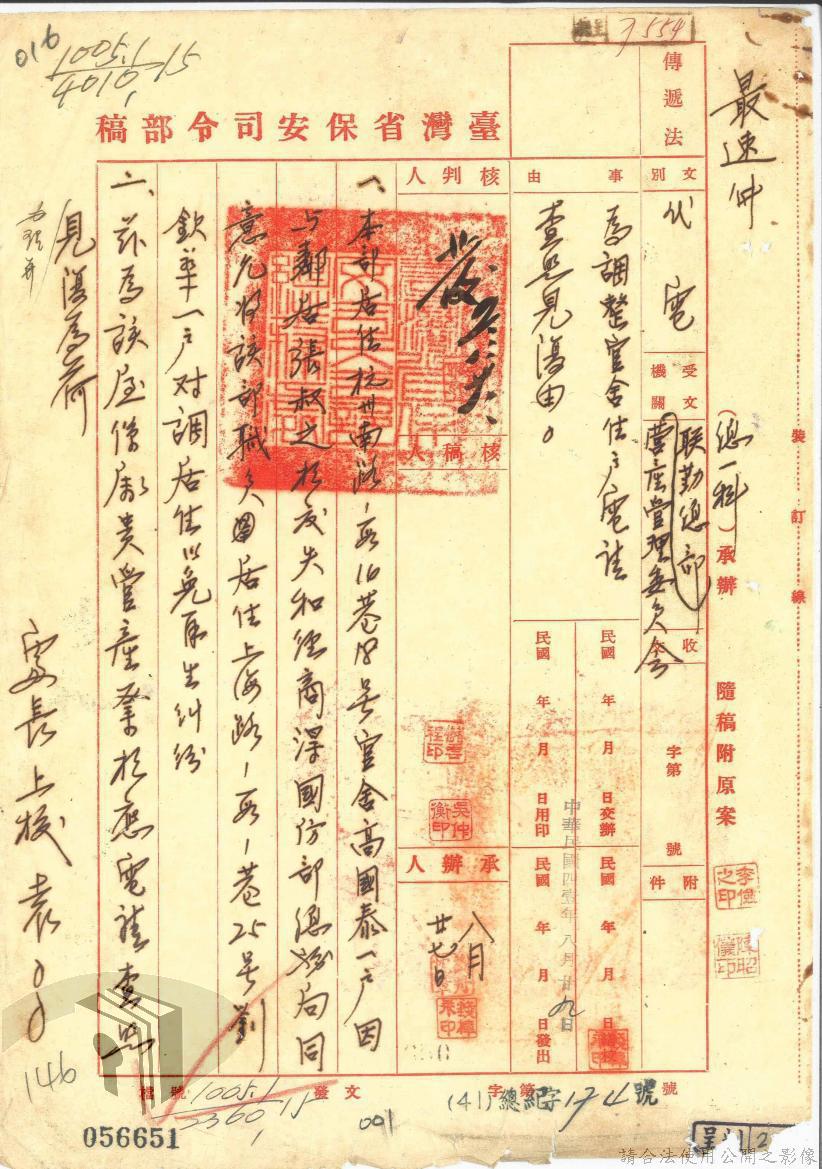 7554
016
1005.1
4010.1
15
臺灣省保安司令部稿
最速件
(總一科)承辦
隨稿附原案
裝
訂
線
傳遞法
文別
代電
受文機關
联勤總部
營產管理委員会
收
字第
號
附件
事由
為調整官舍住户電請
查照見復由。
民國 年 月 日交辦
民國 年 月 日用印
民國 年 月 日
民國 年 月 日發出
中華民國四壹年八月廿九日
核判人
核稿人
承辦人
八月
廿七日
一、本部居住杭州南路一段16巷18号官舍高國泰一户因
与鄰居張叔之於友失和經商得國防部總務局同
意允將該部職員 居住上海路一段一巷25号劉
欽華一户对調居住以免再生糾紛
二、茲為該屋係屬貴營產業 應電請查照
見復為荷
處長上校袁
146
檔號
1005.1
3360.1
15
發文
字第
號
(41)總紀字174號
001
056651
2
請合法使用公開之影像